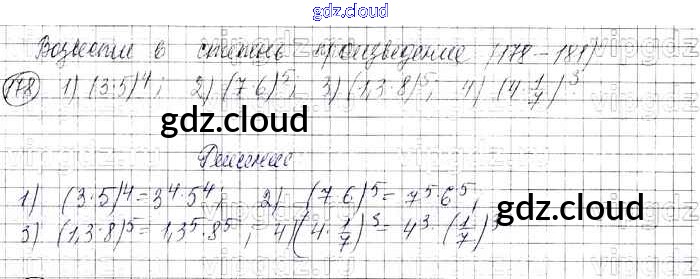 gdz.cloud
Возвести в степень произведение (178–181)
178 1) (3·5)⁴; 2) (7·6)⁵; 3) (1,3·8)⁵; 4) (4·1/7)³
gdz.cloud gdz.cloud
Решение
1) (3·5)⁴=3⁴·5⁴; 2) (7·6)⁵=7⁵·6⁵;
3) (1,3·8)⁵=1,3⁵·8⁵; 4) (4·1/7)³=4³·(1/7)³
gdz.cloud